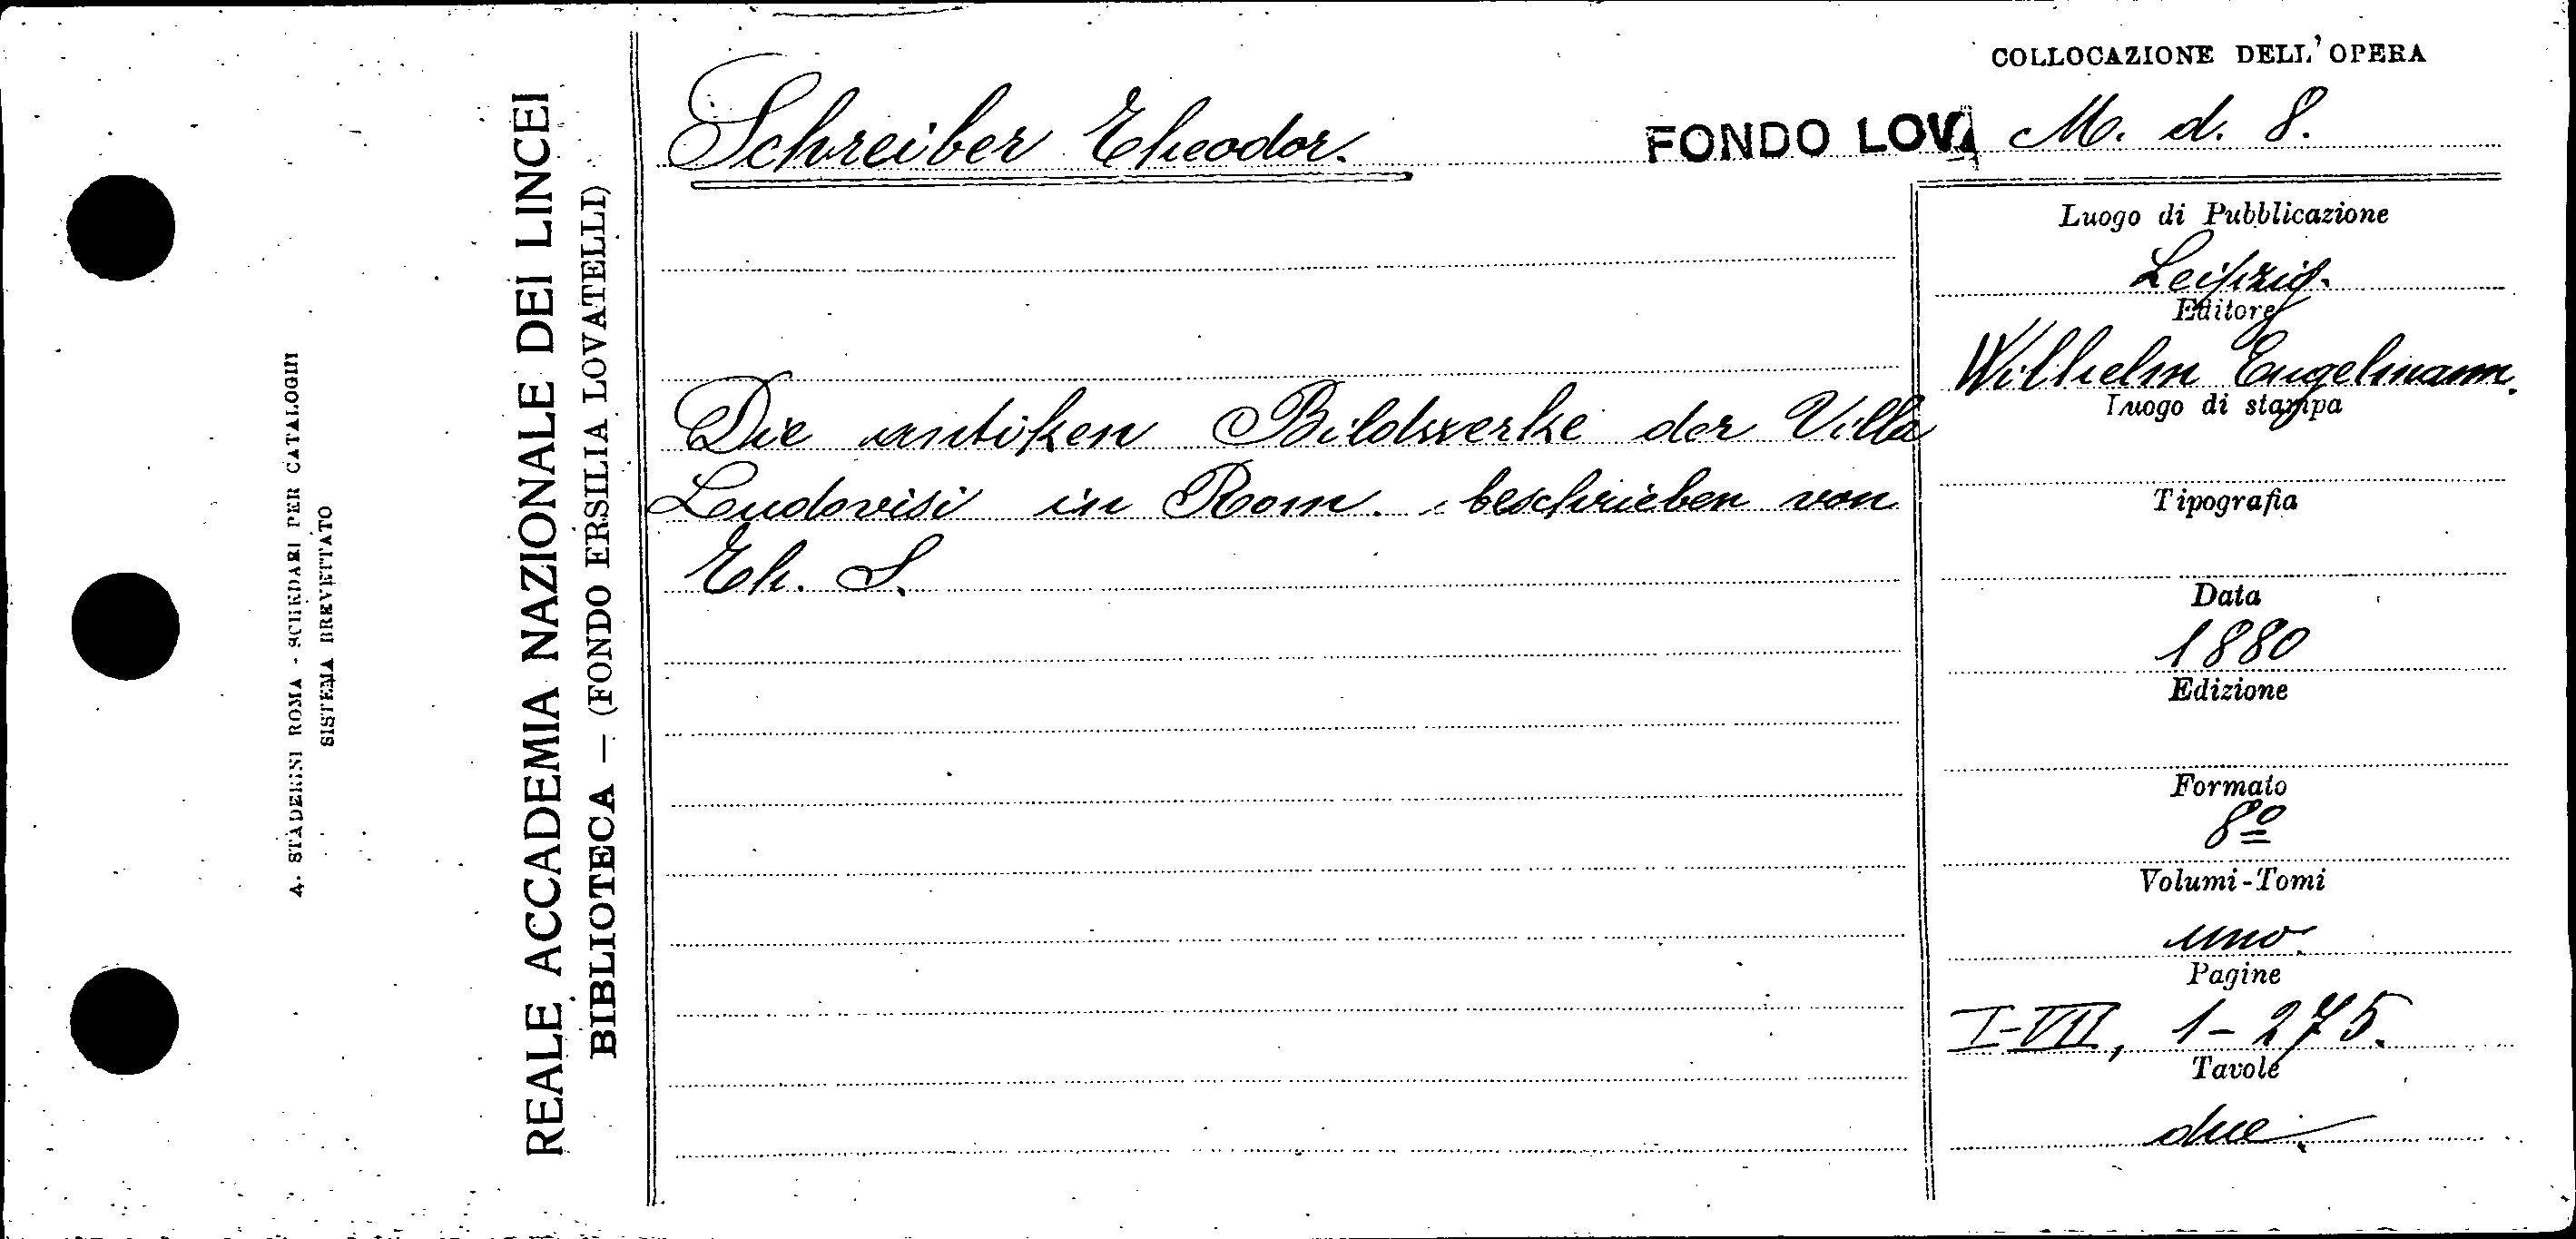 A. STADERINI ROMA - SCHEDARI PER CATALOGHI
SISTEMA BREVETTATO
REALE ACCADEMIA NAZIONALE DEI LINCEI
BIBLIOTECA — (FONDO ERSILIA LOVATELLI)
Schreiber Theodor.
FONDO LOVA
COLLOCAZIONE DELL'OPERA
M. d. 8.
Die antiken Bildwerke der Villa
Ludovisi in Rom. beschrieben von
Th. S.
Luogo di Pubblicazione
Leipzig.
Editore
Wilhelm Engelmann.
Luogo di stampa
Tipografia
Data
1880
Edizione
Formato
8º
Volumi-Tomi
uno.
Pagine
I-VII, 1-275.
Tavole
due.